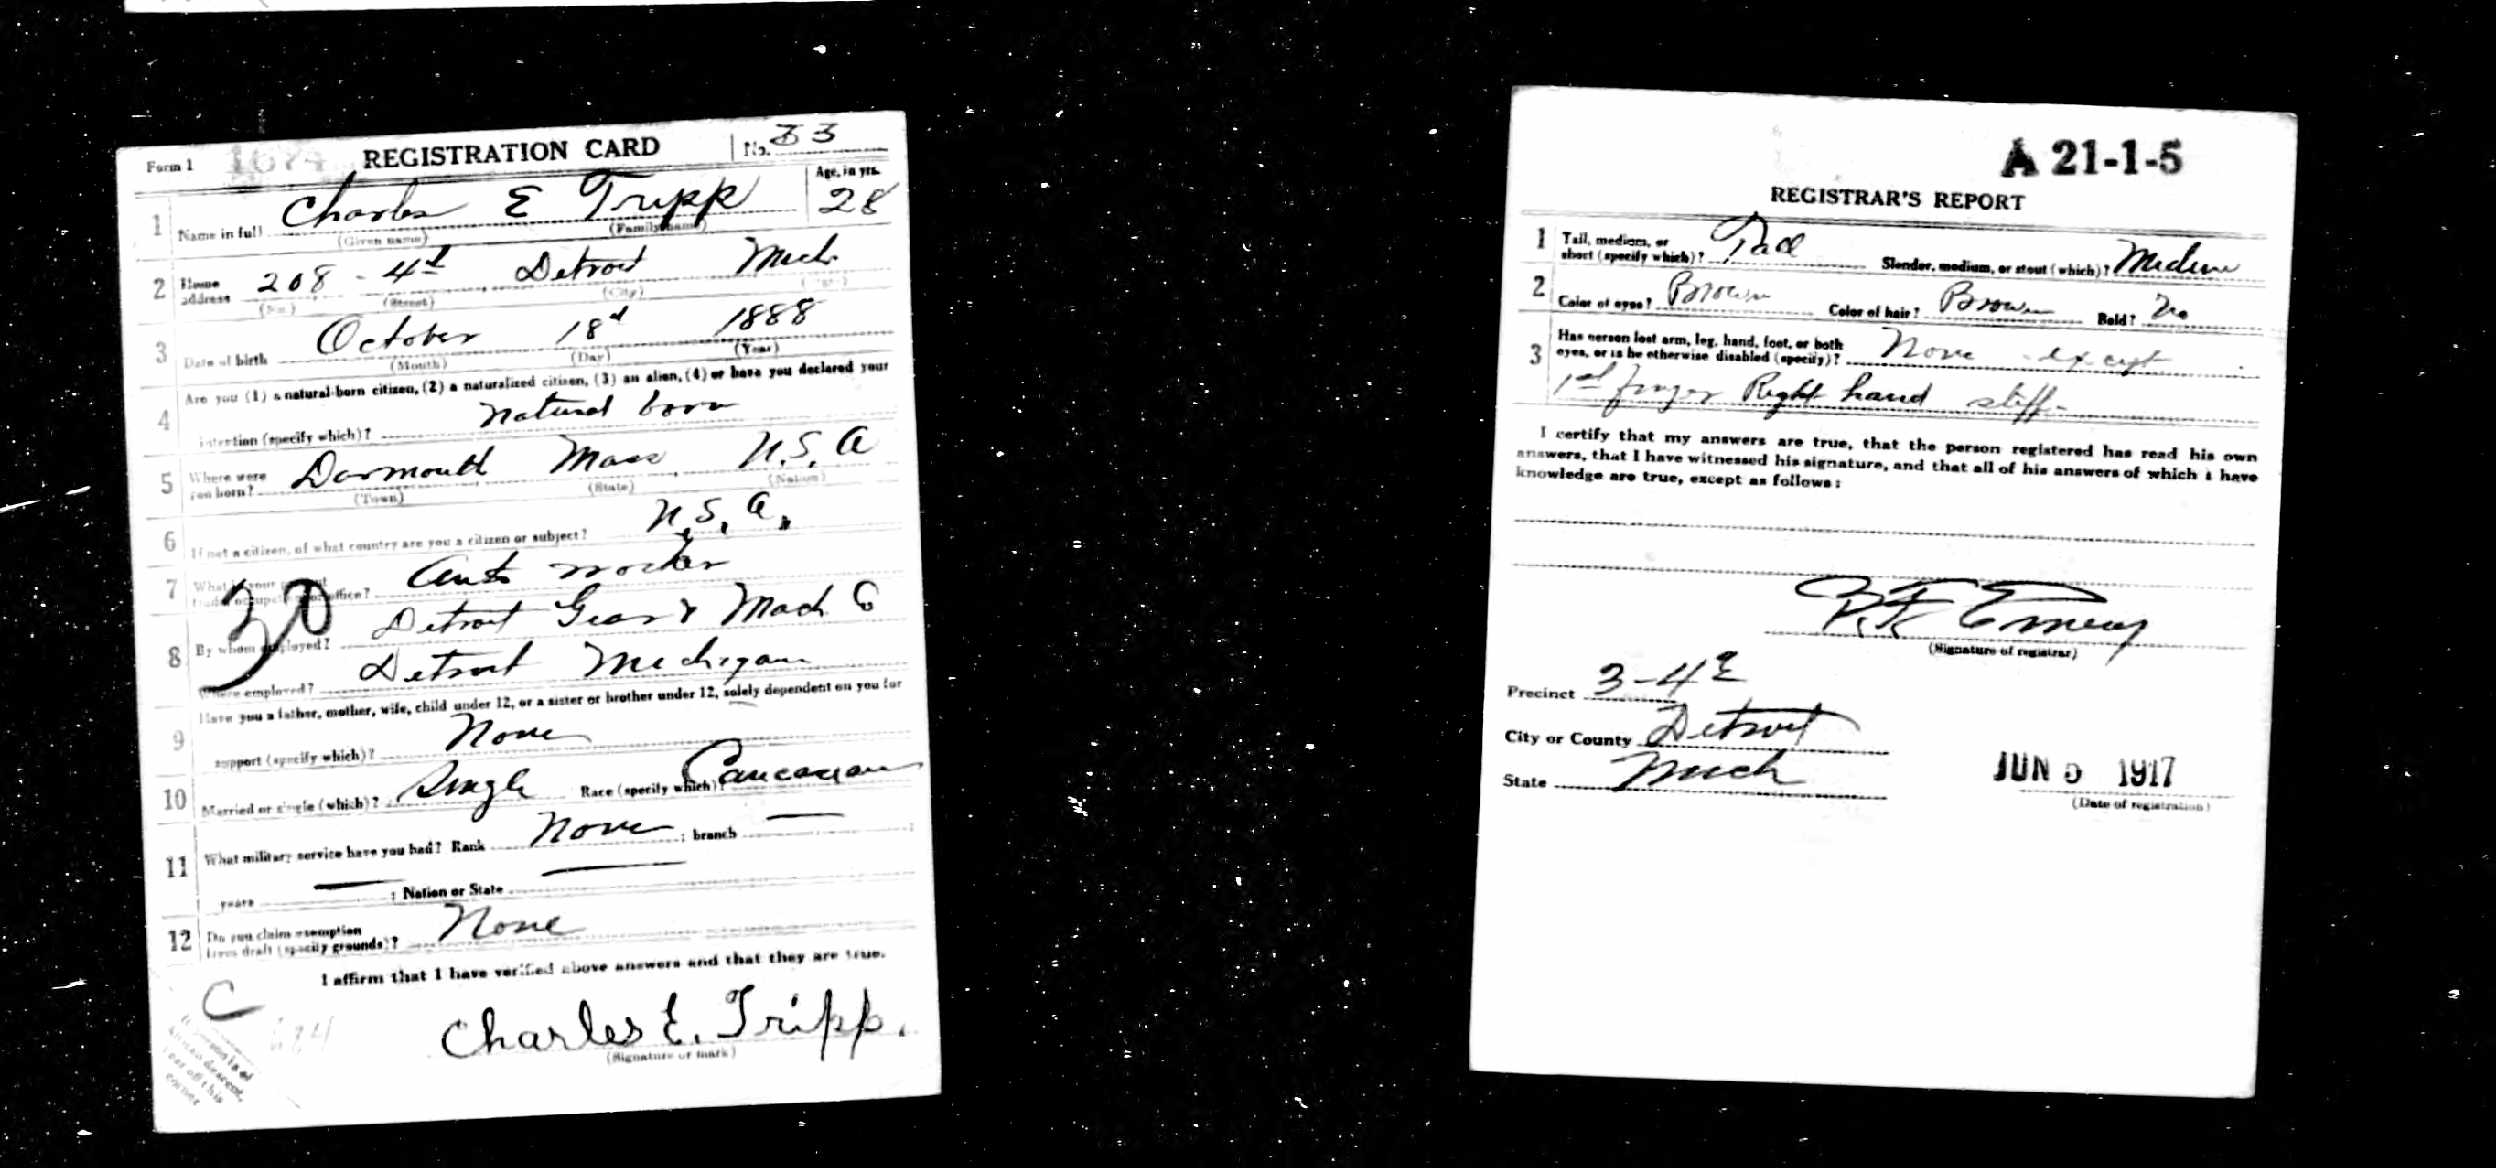 Form 1 1674 REGISTRATION CARD No. 33
1 Name in full Charles E Tripp Age, in yrs. 28
(Given name) (Family name)
2 Home address 208 - 4th Detroit Mich
(No.) (Street) (City) (State)
3 Date of birth October 18th 1888
(Month) (Day) (Year)
Are you (1) a natural-born citizen, (2) a naturalized citizen, (3) an alien, (4) or have you declared your
4 intention (specify which)? natural born
5 Where were you born? Darmouth Mass U.S.A
(Town) (State) (Nation)
6 If not a citizen, of what country are you a citizen or subject? U.S.A.
7 What is your present trade, occupation, or office? Auto worker
8 By whom employed? Detroit Gear & Mach Co
Where employed? Detroit Michigan
30
Have you a father, mother, wife, child under 12, or a sister or brother under 12, solely dependent on you for
9 support (specify which)? None
10 Married or single (which)? Single Race (specify which)? Caucasian
11 What military service have you had? Rank None ; branch — ;
years — ; Nation or State —
12 Do you claim exemption from draft (specify grounds)? None
I affirm that I have verified above answers and that they are true.
C
Charles E. Tripp.
(Signature or mark)
of
descent,
tear off this
corner
A 21-1-5
REGISTRAR'S REPORT
1 Tall, medium, or short (specify which)? Tall Slender, medium, or stout (which)? Medium
2 Color of eyes? Brown Color of hair? Brown Bald? No
3 Has person lost arm, leg, hand, foot, or both eyes, or is he otherwise disabled (specify)? None except
1st finger Right hand stiff-
I certify that my answers are true, that the person registered has read his own
answers, that I have witnessed his signature, and that all of his answers of which I have
knowledge are true, except as follows:
Emery
(Signature of registrar)
Precinct 3-4
City or County Detroit
State Mich
JUN 5 1917
(Date of registration)